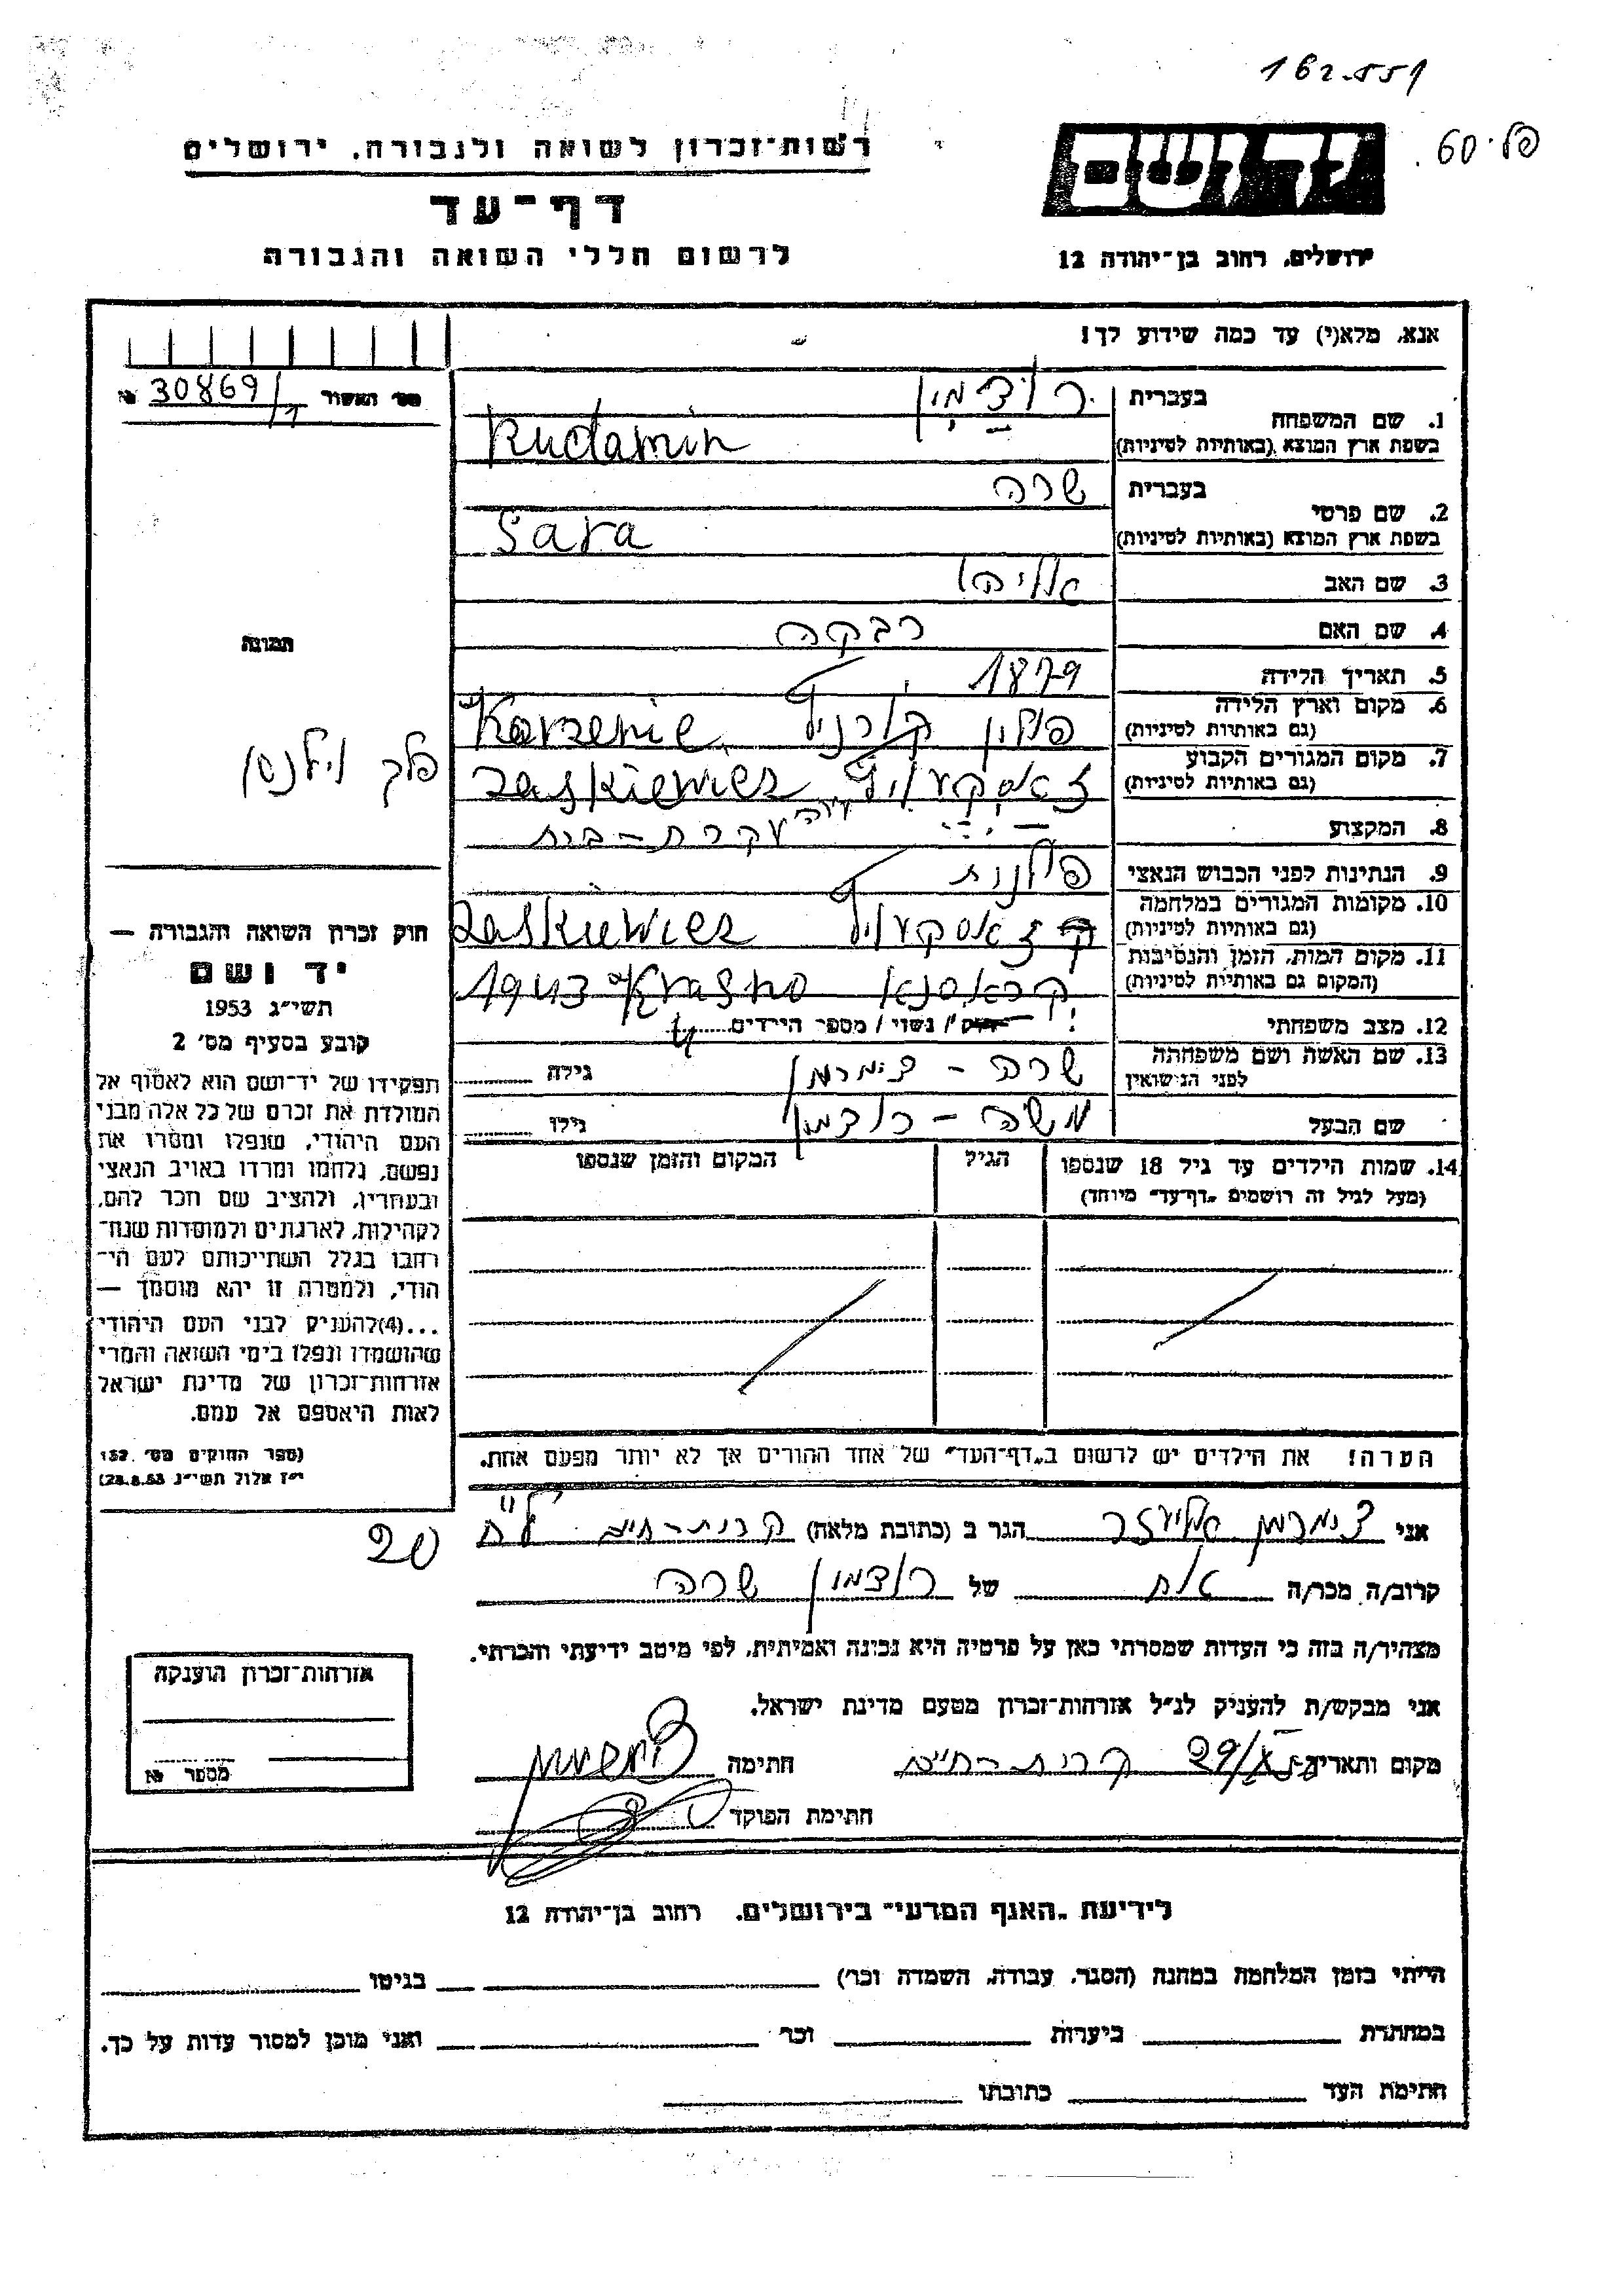 162.551
פל. 60
יד ושם
רשות־זכרון לשואה ולגבורה, ירושלים
דף־עד
לרשום חללי השואה והגבורה
ירושלים, רחוב בן־יהודה 12
אנא, מלא(י) עד כמה שידוע לך!
מס׳ האשור № 30869/1
1. שם המשפחה
בעברית רודמין
בשפת ארץ המוצא (באותיות לטיניות) Rudamin
2. שם פרטי
בעברית שרה
בשפת ארץ המוצא (באותיות לטיניות) Sara
3. שם האב אליהו
4. שם האם רבקה
5. תאריך הלידה 1879
6. מקום וארץ הלידה
(גם באותיות לטיניות) פולין
7. מקום המגורים הקבוע
(גם באותיות לטיניות) Zaskiewicz
8. המקצוע עקרת-בית
9. הנתינות לפני הכבוש הנאצי פולנית
10. מקומות המגורים במלחמה
(גם באותיות לטיניות) Zaskiewicz
11. מקום המות, הזמן והנסיבות
(המקום גם באותיות לטיניות) קראסנא Krasno 1943
12. מצב משפחתי רווק / נשוי / מספר הילדים 4
13. שם האשה ושם משפחתה
לפני הנישואין שרה - צימרמן גילה
שם הבעל משה - רודמין גילו
14. שמות הילדים עד גיל 18 שנספו
(מעל לגיל זה רושמים „דף־עד״ מיוחד)
הגיל
המקום והזמן שנספו
הערה! את הילדים יש לרשום ב„דף־העד״ של אחד ההורים אך לא יותר מפעם אחת.
תמונה
פלך וילנסקי
חוק זכרון השואה והגבורה —
יד ושם
תשי״ג 1953
קובע בסעיף מס׳ 2
תפקידו של יד־ושם הוא לאסוף אל
המולדת את זכרם של כל אלה מבני
העם היהודי, שנפלו ומסרו את
נפשם, נלחמו ומרדו באויב הנאצי
ובעוזריו, ולהציב שם וזכר להם,
לקהילות, לארגונים ולמוסדות שנח־
רבו בגלל השתייכותם לעם הי־
הודי, ולמטרה זו יהא מוסמך —
...(4) להעניק לבני העם היהודי
שהושמדו ונפלו בימי השואה והמרי
אזרחות־זכרון של מדינת ישראל
לאות היאספם אל עמם.
(ספר החוקים מס׳ 132,
י״ז אלול תשי״ג 28.8.53)
20
אני צימרמן אליעזר הגר ב (כתובת מלאה) קרית-חיים
קרוב/ה מכר/ה אח של רודמין שרה
מצהיר/ה בזה כי העדות שמסרתי כאן על פרטיה היא נכונה ואמיתית, לפי מיטב ידיעתי והכרתי.
אני מבקש/ת להעניק לנ״ל אזרחות־זכרון מטעם מדינת ישראל.
מקום ותאריך קרית-חיים חתימה צימרמן
חתימת הפוקד
אזרחות־זכרון הוענקה
מספר №
לידיעת „האגף המדעי״ בירושלים, רחוב בן־יהודה 12
הייתי בזמן המלחמה במחנה (הסגר, עבודה, השמדה וכר׳) בגיטו
במחתרת ביערות וכר ואני מוכן למסור עדות על כך.
חתימת העד כתובתו